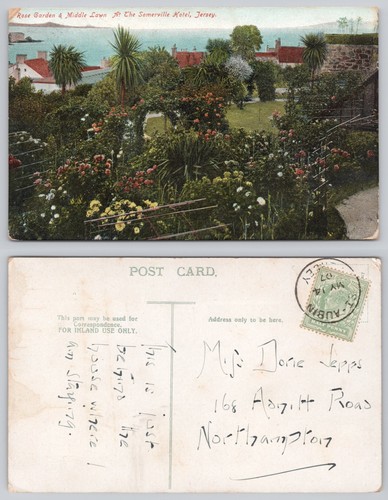 Rose Garden & Middle Lawn At The Somerville Hotel, Jersey.
POST CARD.
This part may be used for
Correspondence.
FOR INLAND USE ONLY.
Address only to be here.
ST. AUBIN
MY 14
07
JERSEY
This is just
behind the
house where I
am staying.
Miss Dorie Jepps
168 Abington Road
Northampton